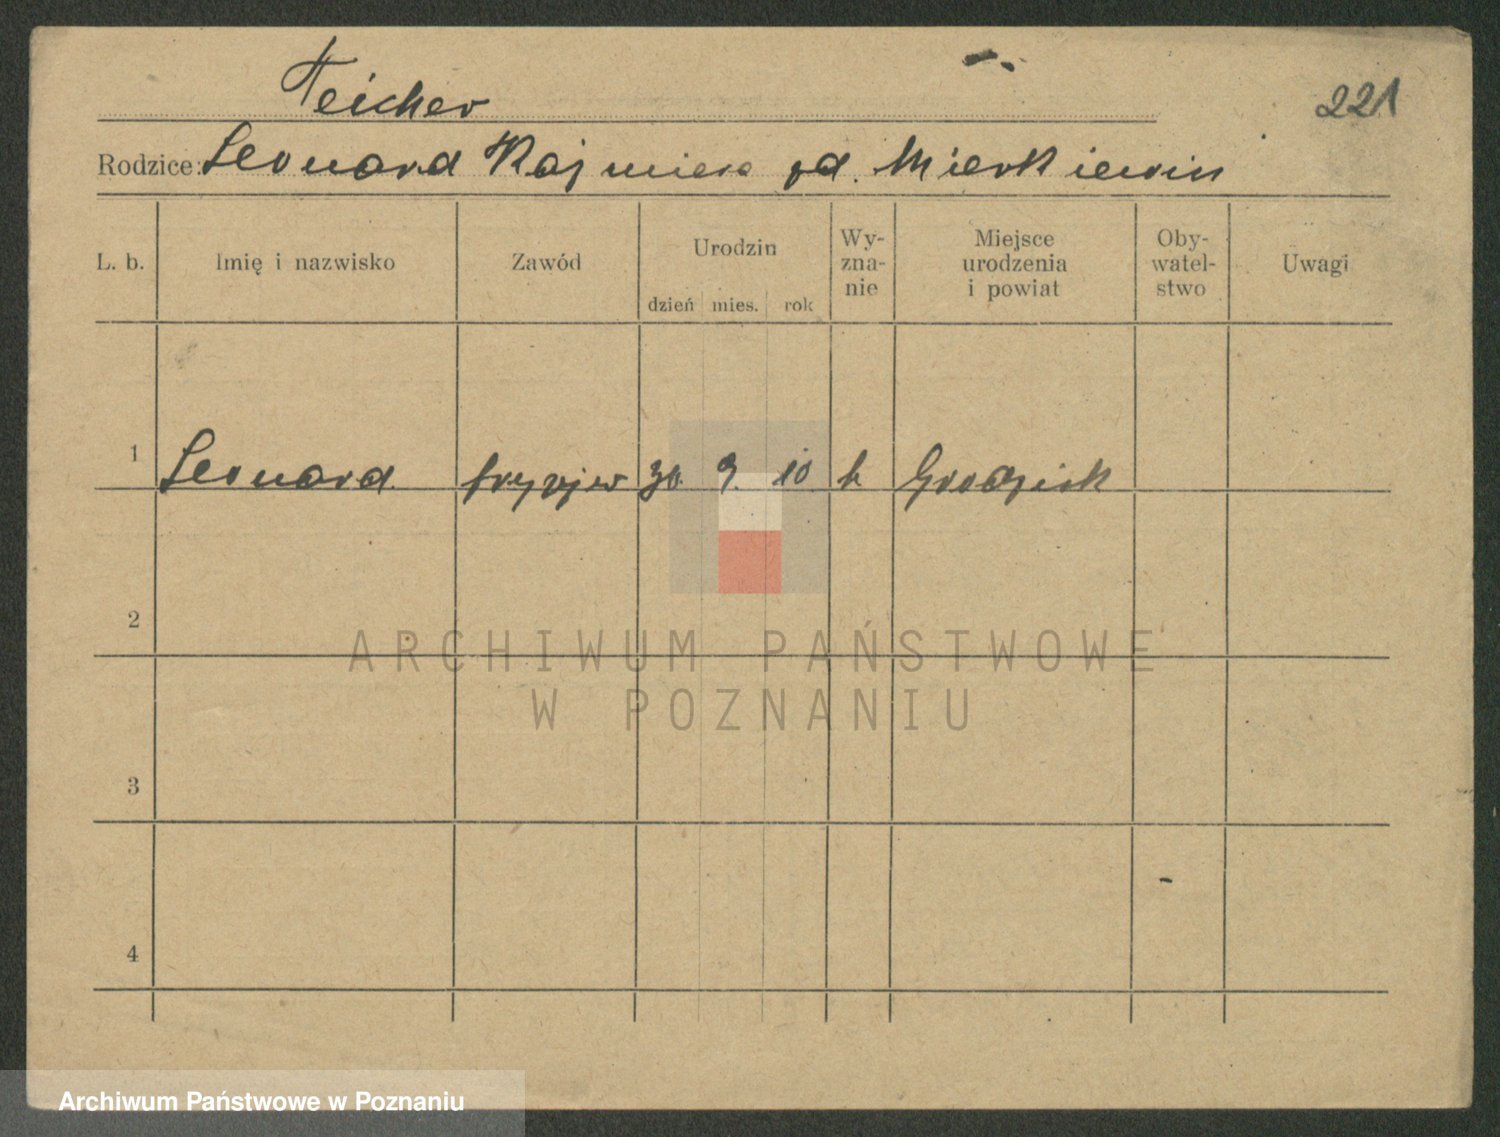 Teicher
221
Rodzice: Leonard Kazmiera zd. Mierkiewicz
L. b. Imię i nazwisko Zawód Urodzin dzień mies. rok Wy-zna-nie Miejsce urodzenia i powiat Oby-watel-stwo Uwagi
1 Leonard fryzjer 30. 9. 10 k Grodzisk
2
ARCHIWUM PAŃSTWOWE
W POZNANIU
3
4
Archiwum Państwowe w Poznaniu